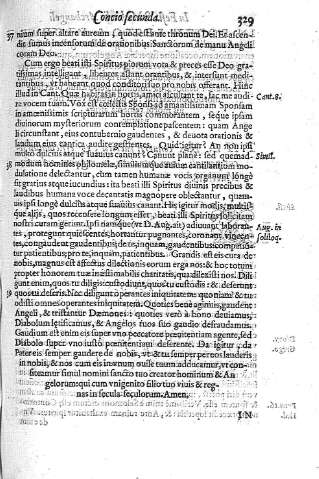 Concio secunda. 329
37 nium super altare aureum, quod est ante thronum Dei. Et ascen-
dit fumus incensorum de orationibus Sanctorum de manu Angeli
coram Deo.
Cum ergo beati isti Spiritus piorum vota & preces esse Deo gra-
tissimas intelligant, libenter astant orantibus, & intersunt medi-
tantibus, vt habeant quod continuò Deo pro nobis offerant. Hinc
illud in Cant. Quæ habitas in hortis, amici auscultant te, fac me audi- Cant. 8.
re vocem tuam. Vox est cœlestis Sponsi ad amantissimam Sponsam
in amœnissimis scripturarum hortis commorantem, séque ipsam
diuinorum mysteriorum contemplatione pascentem: quam Ange
li circunstant, eius contubernio gaudentes, & deuota orationis &
laudum eius cantica audire gestientes. Quid igitur? An non ipsi
multo dulcius atque suauius canunt? Canunt planè: sed quemad- Simil.
38 modum homines philomelæ, similisúe auiculæ cantilenis
dulatione delectantur, cum tamen humanæ vocis
sit gratius atque iucundius: ita beati illi Spiritus diuinis precibus &
laudibus humana voce decantatis magnopere oblectantur, quam-
uis ipsi longè dulcius atque suauius canant. His igitur modis,
que alijs, quos recensere longum esset, beati illi Spiritus
nostri curam gerunt. Ipsi namque (vt D. Aug. ait) adiuuant laboran- Aug. in
tes, protegunt quiescentes, hortantur pugnantes, coronant vincen- soliloq.
tes, congaudent gaudentibus; de te, inquam, gaudentibus:
tur patientibus; pro te, inquam, patientibus. Grandis est eis cura de
nobis, magnus est affectus dilectionis eorum erga nos: & hoc totum
propter honorem tuæ inæstimabilis charitatis, qua dilexisti nos. Dili-
gunt enim, quos tu diligis: custodiunt, quos tu custodis: & deserunt
39 quos tu deseris. Nec diligunt operantes iniquitatem: quoniam & tu
odisti omnes operantes iniquitatem. Quoties benè agimus, gaudent
Angeli, & tristantur Dæmones: quoties verò à bono deuiamus,
Diabolum lętificamus, & Angelos suos suo gaudio defraudamus.
Gaudium est enim eis super vno peccatore pœnitentiam agente, sed
Diabolo super vno iusto pœnitentiam deserente. Da igitur, da
Pater eis semper gaudere de nobis, vt & tu semper per eos lauderis
in nobis, & nos cum eis in vnum ouile tuum adducamur, vt con-
fiteamur simul nomini sancto tuo creator hominum & An
gelorum: qui cum vnigenito filio tuo viuis & reg-
nas in secula seculorum. Amen.
IN